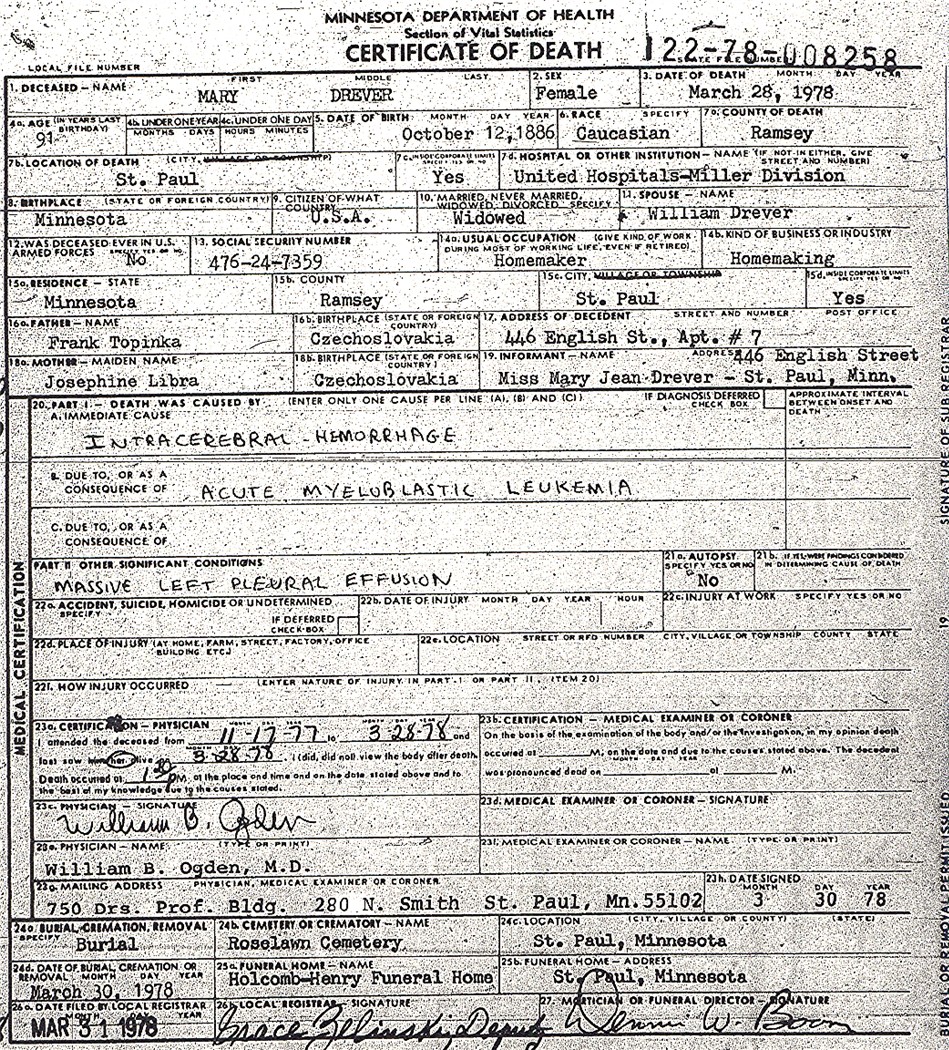 MINNESOTA DEPARTMENT OF HEALTH
Section of Vital Statistics
CERTIFICATE OF DEATH
122-78-008258
LOCAL FILE NUMBER
1. DECEASED - NAME FIRST MIDDLE LAST 2. SEX 3. DATE OF DEATH MONTH DAY YEAR
MARY DREVER Female March 28, 1978
4a. AGE (IN YEARS LAST BIRTHDAY) 4b. UNDER ONE YEAR 4c. UNDER ONE DAY 5. DATE OF BIRTH MONTH DAY YEAR 6. RACE SPECIFY 7a. COUNTY OF DEATH
MONTHS DAYS HOURS MINUTES
91 October 12, 1886 Caucasian Ramsey
7b. LOCATION OF DEATH (CITY, VILLAGE OR TOWNSHIP) 7c. INSIDE CORPORATE LIMITS SPECIFY YES OR NO 7d. HOSPITAL OR OTHER INSTITUTION - NAME (IF NOT IN EITHER, GIVE STREET AND NUMBER)
St. Paul Yes United Hospitals-Miller Division
8. BIRTHPLACE (STATE OR FOREIGN COUNTRY) 9. CITIZEN OF WHAT COUNTRY 10. MARRIED, NEVER MARRIED, WIDOWED, DIVORCED SPECIFY 11. SPOUSE - NAME
Minnesota U.S.A. Widowed William Drever
12. WAS DECEASED EVER IN U.S. ARMED FORCES SPECIFY YES OR NO 13. SOCIAL SECURITY NUMBER 14a. USUAL OCCUPATION (GIVE KIND OF WORK DURING MOST OF WORKING LIFE, EVEN IF RETIRED) 14b. KIND OF BUSINESS OR INDUSTRY
No 476-24-7359 Homemaker Homemaking
15a. RESIDENCE - STATE 15b. COUNTY 15c. CITY, VILLAGE OR TOWNSHIP 15d. INSIDE CORPORATE LIMITS SPECIFY YES OR NO
Minnesota Ramsey St. Paul Yes
16a. FATHER - NAME 16b. BIRTHPLACE (STATE OR FOREIGN COUNTRY) 17. ADDRESS OF DECEDENT STREET AND NUMBER POST OFFICE
Frank Topinka Czechoslovakia 446 English St., Apt. # 7
18a. MOTHER - MAIDEN NAME 18b. BIRTHPLACE (STATE OR FOREIGN COUNTRY) 19. INFORMANT - NAME ADDRESS 446 English Street
Josephine Libra Czechoslovakia Miss Mary Jean Drever - St. Paul, Minn.
20. PART I. - DEATH WAS CAUSED BY (ENTER ONLY ONE CAUSE PER LINE (A), (B) AND (C)) IF DIAGNOSIS DEFERRED CHECK BOX APPROXIMATE INTERVAL BETWEEN ONSET AND DEATH
A. IMMEDIATE CAUSE
INTRACEREBRAL - HEMORRHAGE
B. DUE TO, OR AS A CONSEQUENCE OF ACUTE MYELOBLASTIC LEUKEMIA
C. DUE TO, OR AS A CONSEQUENCE OF
PART II OTHER SIGNIFICANT CONDITIONS 21a. AUTOPSY SPECIFY YES OR NO 21b. IF YES, WERE FINDINGS CONSIDERED IN DETERMINING CAUSE OF DEATH
MASSIVE LEFT PLEURAL EFFUSION No
22a. ACCIDENT, SUICIDE, HOMICIDE OR UNDETERMINED SPECIFY IF DEFERRED CHECK BOX 22b. DATE OF INJURY MONTH DAY YEAR HOUR 22c. INJURY AT WORK SPECIFY YES OR NO
22d. PLACE OF INJURY (AT HOME, FARM, STREET, FACTORY, OFFICE BUILDING ETC.) 22e. LOCATION STREET OR RFD NUMBER CITY, VILLAGE OR TOWNSHIP COUNTY STATE
22f. HOW INJURY OCCURRED (ENTER NATURE OF INJURY IN PART I OR PART II, ITEM 20)
MEDICAL CERTIFICATION
23a. CERTIFICATION - PHYSICIAN 23b. CERTIFICATION - MEDICAL EXAMINER OR CORONER
I attended the deceased from 11-17-77 to 3-28-78 and
last saw him/her alive 3-28-78 I (did, did not) view the body after death
Death occurred at 1:20 P M. at the place and time and on the date stated above and to
the best of my knowledge due to the causes stated.
On the basis of the examination of the body and/or the investigation, in my opinion death
occurred at M. on the date and due to the causes stated above. The decedent
MONTH DAY YEAR
was pronounced dead on at M.
23c. PHYSICIAN - SIGNATURE 23d. MEDICAL EXAMINER OR CORONER - SIGNATURE
William B. Ogden
23e. PHYSICIAN - NAME (TYPE OR PRINT) 23f. MEDICAL EXAMINER OR CORONER - NAME (TYPE OR PRINT)
William B. Ogden, M.D.
23g. MAILING ADDRESS PHYSICIAN, MEDICAL EXAMINER OR CORONER 23h. DATE SIGNED MONTH DAY YEAR
750 Drs. Prof. Bldg. 280 N. Smith St. Paul, Mn. 55102 3 30 78
24a. BURIAL, CREMATION, REMOVAL SPECIFY 24b. CEMETERY OR CREMATORY - NAME 24c. LOCATION (CITY, VILLAGE OR COUNTY) (STATE)
Burial Roselawn Cemetery St. Paul, Minnesota
24d. DATE OF BURIAL, CREMATION OR REMOVAL MONTH DAY YEAR 25a. FUNERAL HOME - NAME 25b. FUNERAL HOME - ADDRESS
March 30, 1978 Holcomb-Henry Funeral Home St. Paul, Minnesota
26a. DATE FILED BY LOCAL REGISTRAR MONTH DAY YEAR 26b. LOCAL REGISTRAR - SIGNATURE 27. MORTICIAN OR FUNERAL DIRECTOR - SIGNATURE
MAR 31 1978 Grace Zelinski, Deputy Dennis W. Boom
SIGNATURE OF SUB-REGISTRAR